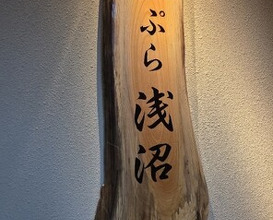 ぷら 浅沼